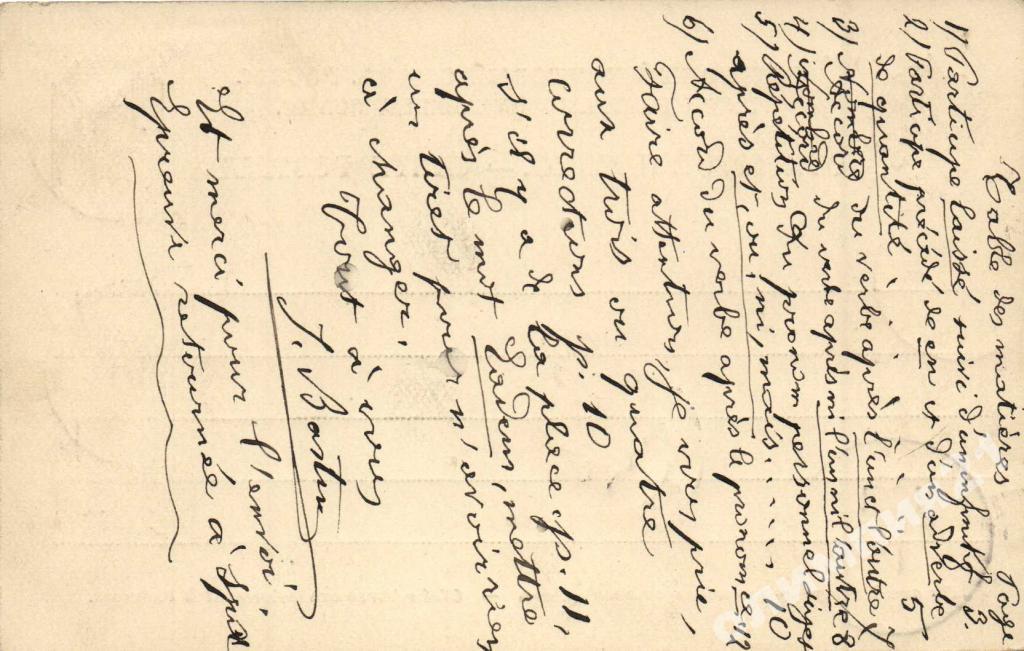 Table des matières Page
1) Participe laissé suivi d'un infinitif 3.
2) Participe précédé de en et d'un adverbe
de quantité . . . . 5
3) Accord du verbe après l'un et l'autre 7
4) Accord du verbe après ni l'un ni l'autre 8
5) Répétition du pronom personnel sujet
après et, ou, ni, mais . . . . . 10
6) Accord du verbe après le pronom ce 12
Faire attention, je vous prie,
aux trois ou quatre
corrections p. 10
s'il y a de la place p. 11,
après le mot mettre
un tiret pour n'avoir rien
à changer.
Tout à vous
J. Bastin
Et merci pour l'envoi.
Epreuve retournée à Spa